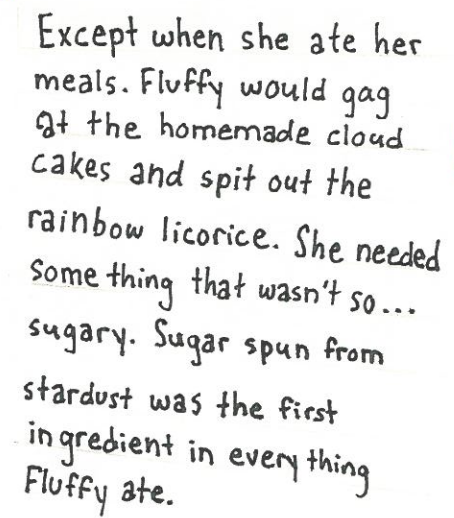 Except when she ate her
meals. Fluffy would gag
at the homemade cloud
cakes and spit out the
rainbow licorice. She needed
something that wasn't so...
sugary. Sugar spun from
stardust was the first
ingredient in everything
Fluffy ate.